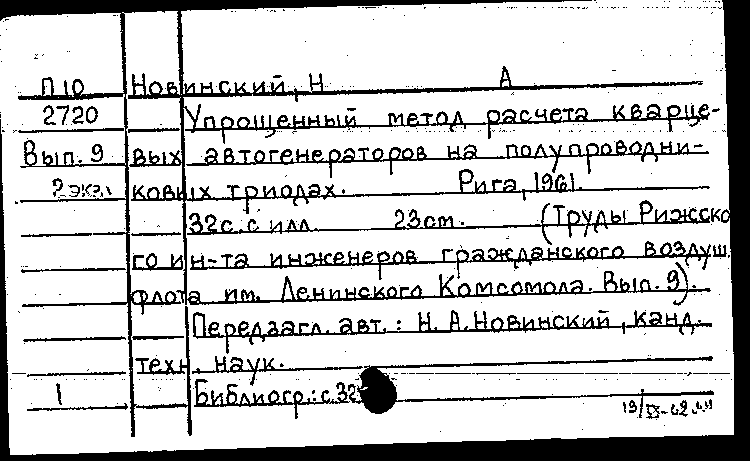 П 10 Новинский, Н А
2720 Упрощенный метод расчета кварце-
Вып. 9 вых автогенераторов на полупроводни-
2 экз. ковых триодах. Рига, 1961.
32с. с илл. 23cm. (Труды Рижско
го ин-та инженеров гражданского воздуш.
флота им. Ленинского Комсомола. Вып. 9).
Передзагл. авт.: Н. А. Новинский, канд.
техн. наук.
1 Библиогр.: с. 32
19/IX-62